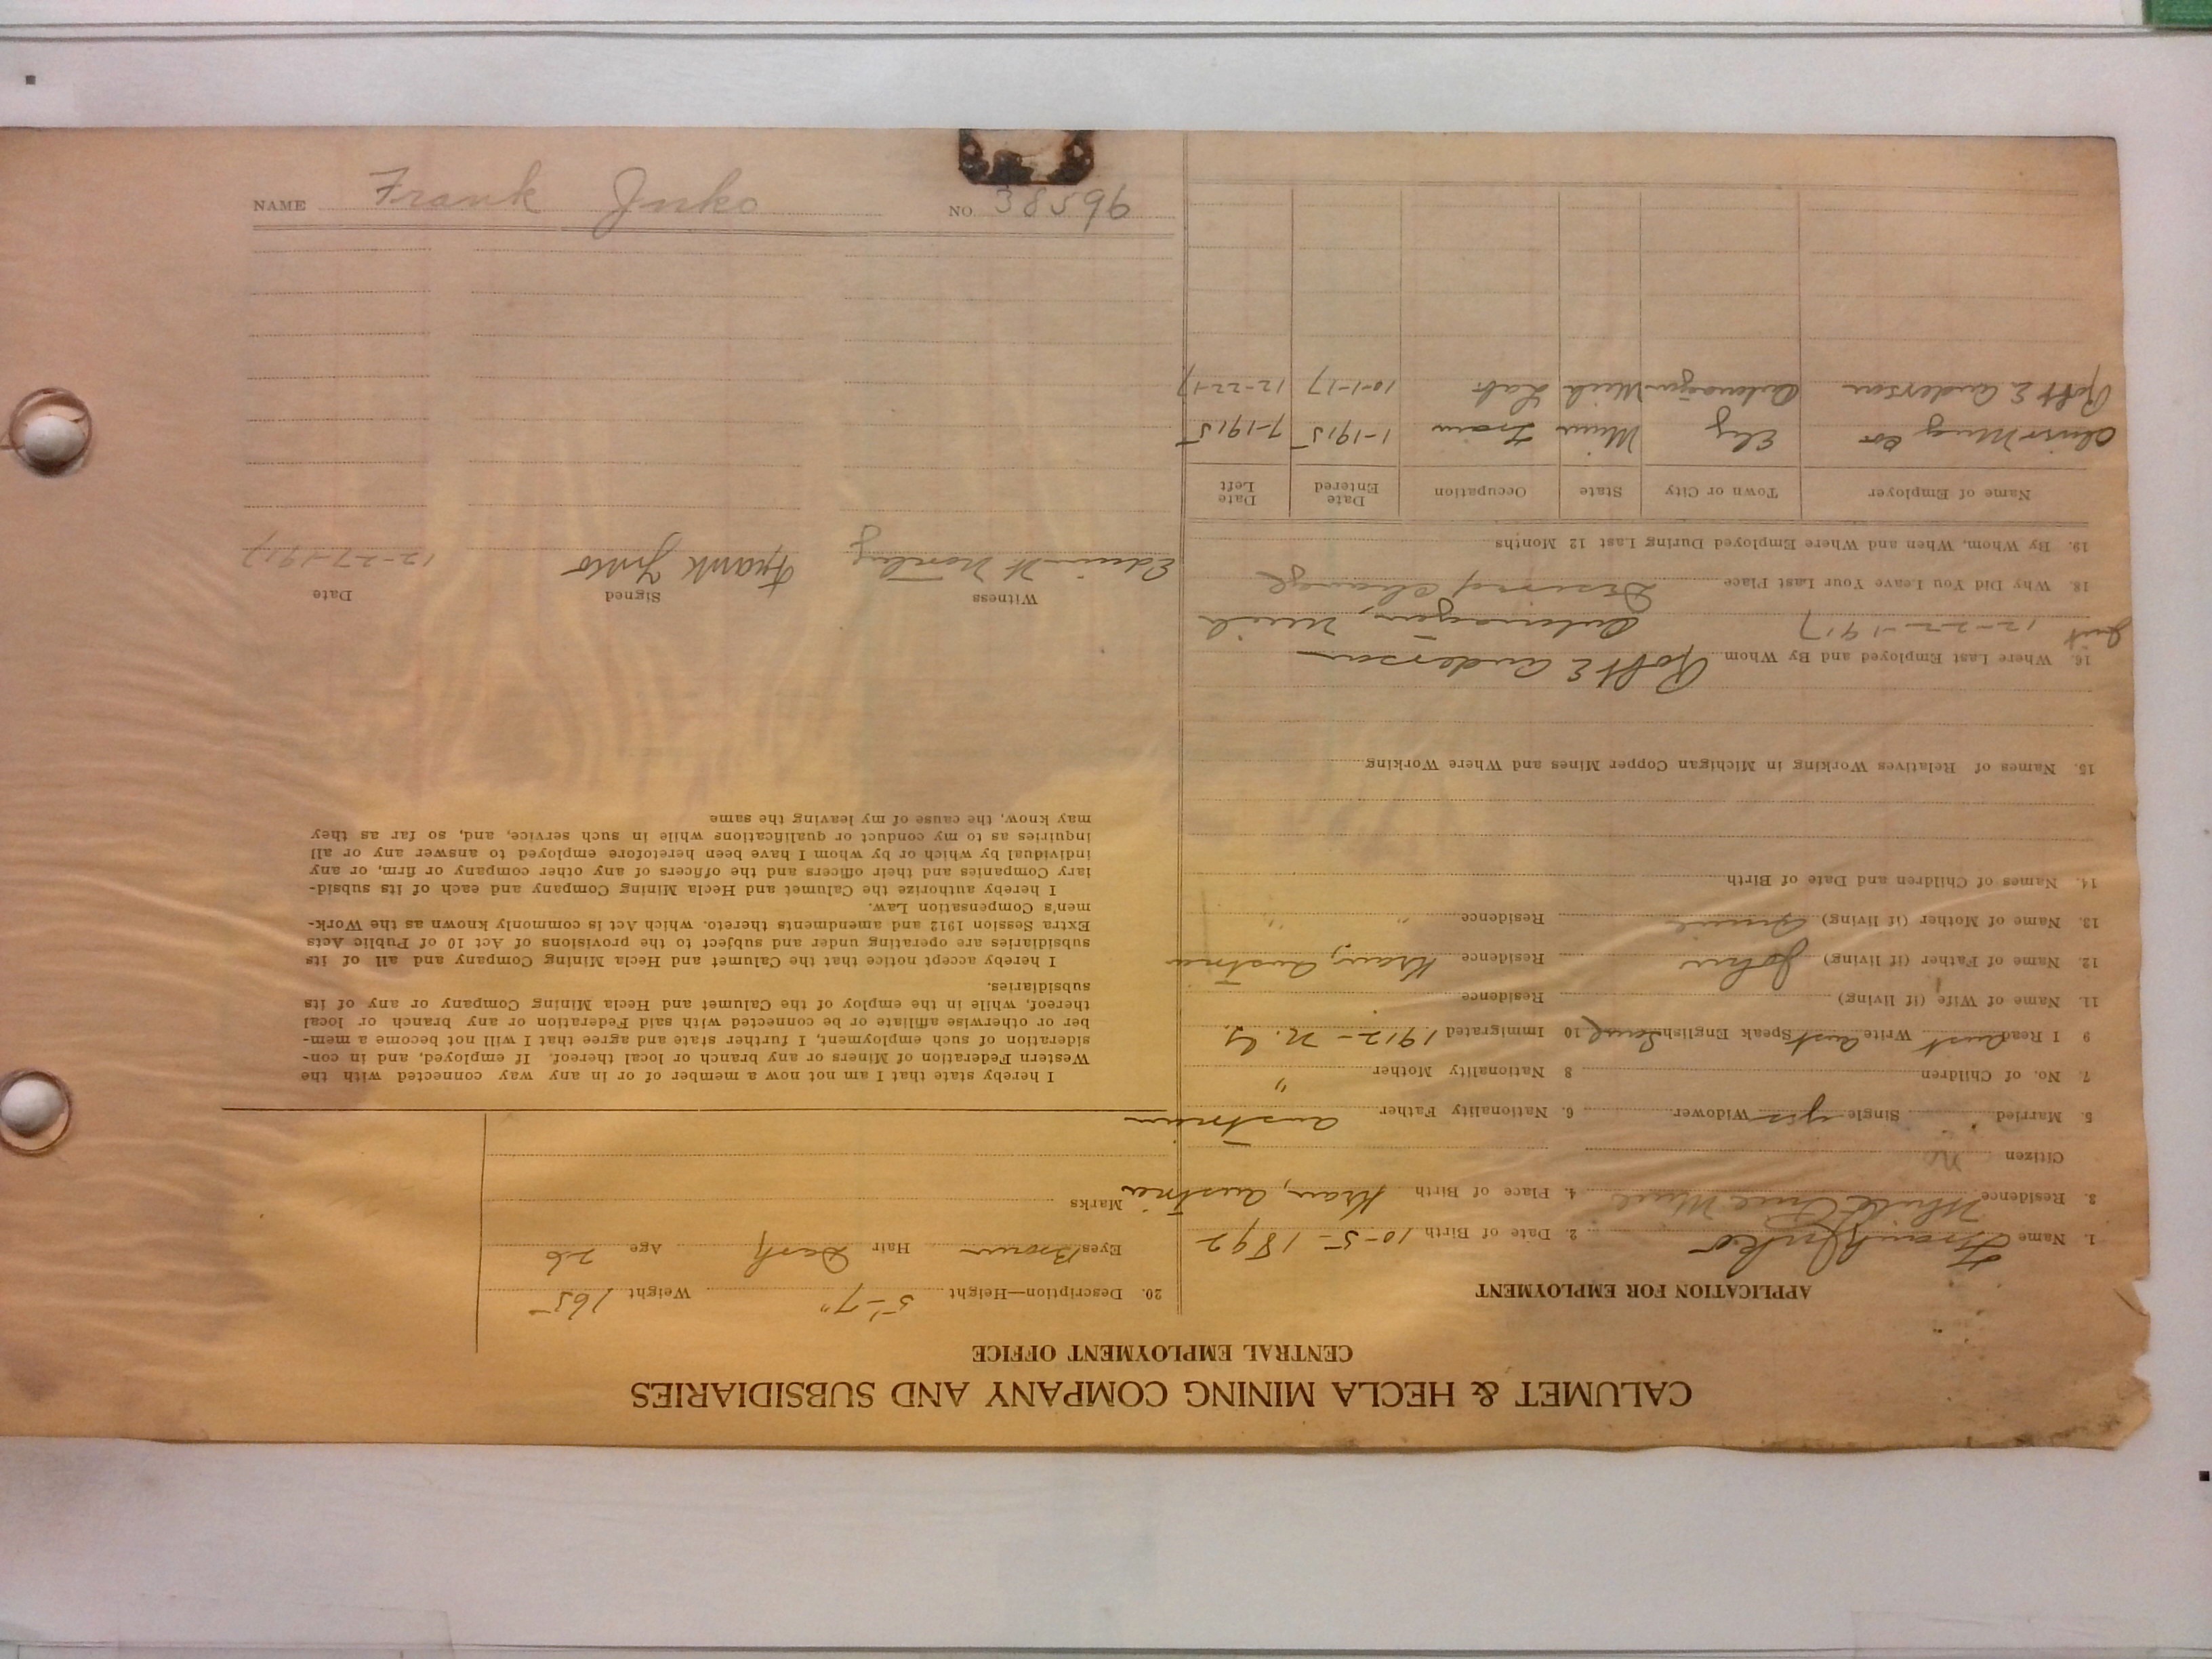 CALUMET & HECLA MINING COMPANY AND SUBSIDIARIES
CENTRAL EMPLOYMENT OFFICE
APPLICATION FOR EMPLOYMENT
1. Name Frank Jnko 2. Date of Birth 10-5-1892
3. Residence White Pine Mine 4. Place of Birth Krain, Austria
Citizen no
5. Married Single yes Widower 6. Nationality Father Austrian
7. No. of Children 8 Nationality Mother "
9 I Read Aust Write Aust Speak English Some 10 Immigrated 1912 - N.Y.
11. Name of Wife (if living) Residence
12. Name of Father (if living) John Residence Krain, Austria
13. Name of Mother (if living) Residence " "
14. Names of Children and Date of Birth
15. Names of Relatives Working in Michigan Copper Mines and Where Working
16. Where Last Employed and By Whom Robt E Anderson
12-22-1917 Mich
18. Why Did You Leave Your Last Place Desired Change
19. By Whom, When and Where Employed During Last 12 Months
Name of Employer Town or City State Occupation Date Entered Date Left
Oliver Ming Co Ely Minn Tram 1-1915 7-1915
Robt E Anderson Mich Lab 10-1-17 12-22-17
20. Description—Height 5'-7" Weight 165
Eyes Brown Hair Dark Age 26
Marks
I hereby state that I am not now a member of or in any way connected with the
Western Federation of Miners or any branch or local thereof. If employed, and in con-
sideration of such employment, I further state and agree that I will not become a mem-
ber or otherwise affiliate or be connected with said Federation or any branch or local
thereof, while in the employ of the Calumet and Hecla Mining Company or any of its
subsidiaries.
I hereby accept notice that the Calumet and Hecla Mining Company and all of its
subsidiaries are operating under and subject to the provisions of Act 10 of Public Acts
Extra Session 1912 and amendments thereto. which Act is commonly known as the Work-
men's Compensation Law.
I hereby authorize the Calumet and Hecla Mining Company and each of its subsid-
iary Companies and their officers and the officers of any other company or firm, or any
individual by which or by whom I have been heretofore employed to answer any or all
inquiries as to my conduct or qualifications while in such service, and, so far as they
may know, the cause of my leaving the same
Witness Signed Date
Edwin H Frank Jnko 12-27-1917
NAME Frank Jnko NO. 38596